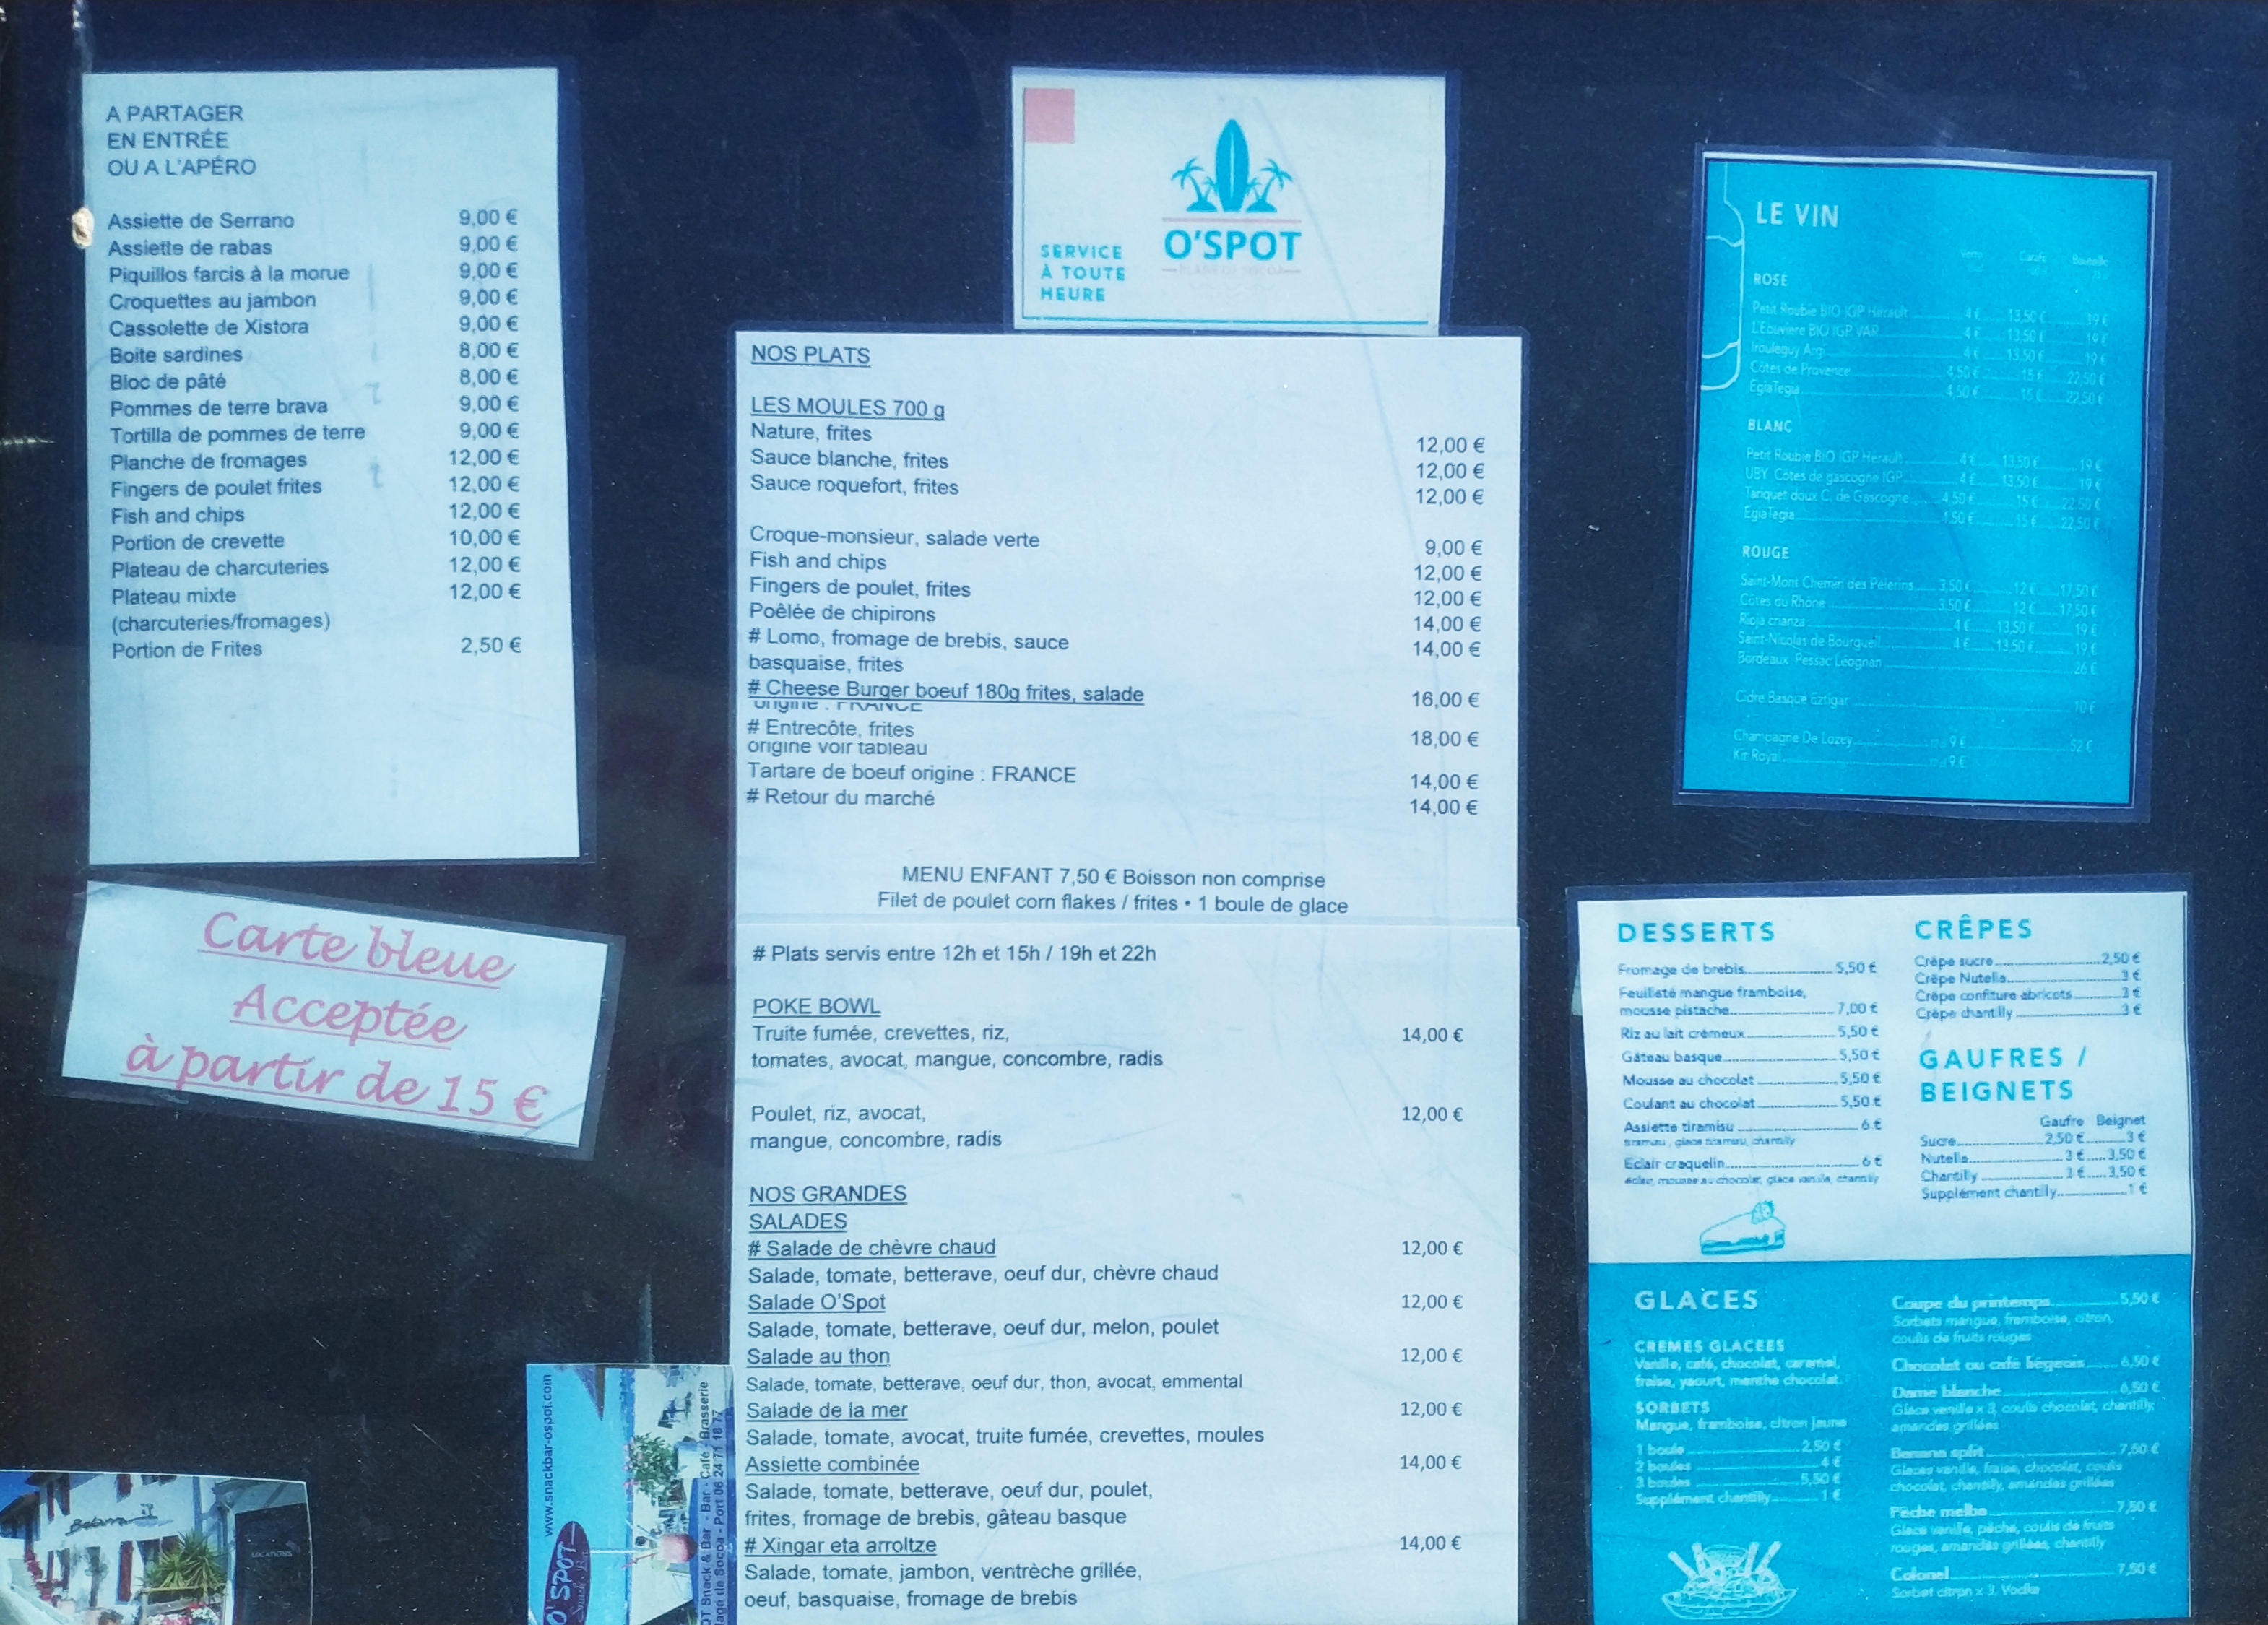 A PARTAGER
EN ENTRÉE
OU A L'APÉRO
Assiette de Serrano 9,00 €
Assiette de rabas 9,00 €
Piquillos farcis à la morue 9,00 €
Croquettes au jambon 9,00 €
Cassolette de Xistora 9,00 €
Boite sardines 8,00 €
Bloc de pâté 8,00 €
Pommes de terre brava 9,00 €
Tortilla de pommes de terre 9,00 €
Planche de fromages 12,00 €
Fingers de poulet frites 12,00 €
Fish and chips 12,00 €
Portion de crevette 10,00 €
Plateau de charcuteries 12,00 €
Plateau mixte 12,00 €
(charcuteries/fromages)
Portion de Frites 2,50 €
Carte bleue
Acceptée
à partir de 15 €
SERVICE
À TOUTE
HEURE
O'SPOT
NOS PLATS
LES MOULES 700 g
Nature, frites 12,00 €
Sauce blanche, frites 12,00 €
Sauce roquefort, frites 12,00 €
Croque-monsieur, salade verte 9,00 €
Fish and chips 12,00 €
Fingers de poulet, frites 12,00 €
Poêlée de chipirons 14,00 €
# Lomo, fromage de brebis, sauce 14,00 €
basquaise, frites
# Cheese Burger boeuf 180g frites, salade 16,00 €
origine : FRANCE
# Entrecôte, frites 18,00 €
origine voir tableau
Tartare de boeuf origine : FRANCE 14,00 €
# Retour du marché 14,00 €
MENU ENFANT 7,50 € Boisson non comprise
Filet de poulet corn flakes / frites • 1 boule de glace
# Plats servis entre 12h et 15h / 19h et 22h
POKE BOWL
Truite fumée, crevettes, riz, 14,00 €
tomates, avocat, mangue, concombre, radis
Poulet, riz, avocat, 12,00 €
mangue, concombre, radis
NOS GRANDES
SALADES
# Salade de chèvre chaud 12,00 €
Salade, tomate, betterave, oeuf dur, chèvre chaud
Salade O'Spot 12,00 €
Salade, tomate, betterave, oeuf dur, melon, poulet
Salade au thon 12,00 €
Salade, tomate, betterave, oeuf dur, thon, avocat, emmental
Salade de la mer 12,00 €
Salade, tomate, avocat, truite fumée, crevettes, moules
Assiette combinée 14,00 €
Salade, tomate, betterave, oeuf dur, poulet,
frites, fromage de brebis, gâteau basque
# Xingar eta arroltze 14,00 €
Salade, tomate, jambon, ventrèche grillée,
oeuf, basquaise, fromage de brebis
LE VIN
Verre Carafe Bouteille
ROSÉ
Petit Roubie BIO IGP Hérault 4 € 13,50 € 19 €
L'Eouviere BIO IGP VAR 4 € 13,50 € 19 €
Irouleguy Argi 4 € 13,50 € 19 €
Côtes de Provence 4,50 € 15 € 22,50 €
EgiaTegia 4,50 € 15 € 22,50 €
BLANC
Petit Roubie BIO IGP Hérault 4 € 13,50 € 19 €
UBY Côtes de gascogne IGP 4 € 13,50 € 19 €
Tariquet doux C. de Gascogne 4,50 € 15 € 22,50 €
EgiaTegia 4,50 € 15 € 22,50 €
ROUGE
Saint-Mont Chemin des Pèlerins 3,50 € 12 € 17,50 €
Côtes du Rhône 3,50 € 12 € 17,50 €
Rioja crianza 4 € 13,50 € 19 €
Saint-Nicolas de Bourgueil 4 € 13,50 € 19 €
Bordeaux Pessac Léognan 26 €
Cidre Basque Eztigar 10 €
Champagne De Lozey 9 € 52 €
Kir Royal 9 €
DESSERTS
Fromage de brebis 5,50 €
Feuilleté mangue framboise,
mousse pistache 7,00 €
Riz au lait crémeux 5,50 €
Gâteau basque 5,50 €
Mousse au chocolat 5,50 €
Coulant au chocolat 5,50 €
Assiette tiramisu 6 €
tiramisu, glace tiramisu, chantilly
Eclair craquelin 6 €
éclair, mousse au chocolat, glace vanille, chantilly
CRÊPES
Crêpe sucre 2,50 €
Crêpe Nutella 3 €
Crêpe confiture abricots 3 €
Crêpe chantilly 3 €
GAUFRES /
BEIGNETS
Gaufre Beignet
Sucre 2,50 € 3 €
Nutella 3 € 3,50 €
Chantilly 3 € 3,50 €
Supplément chantilly 1 €
GLACES
CREMES GLACEES
Vanille, café, chocolat, caramel,
fraise, yaourt, menthe chocolat.
SORBETS
Mangue, framboise, citron jaune
1 boule 2,50 €
2 boules 4 €
3 boules 5,50 €
Supplément chantilly 1 €
Coupe du printemps 5,50 €
Sorbets mangue, framboise, citron,
coulis de fruits rouges
Chocolat ou café liégeois 6,50 €
Dame blanche 6,50 €
Glace vanille x 3, coulis chocolat, chantilly,
amandes grillées
Banana split 7,50 €
Glaces vanille, fraise, chocolat, coulis
chocolat, chantilly, amandes grillées
Pêche melba 7,50 €
Glace vanille, pêche, coulis de fruits
rouges, amandes grillées, chantilly
Colonel 7,50 €
Sorbet citron x 3, Vodka
www.snackbar-ospot.com
O'SPOT
Snack Bar
OT Snack & Bar - Bar - Café - Brasserie
Plage de Socoa - Port 06 24 71 18 77
LOCATIONS